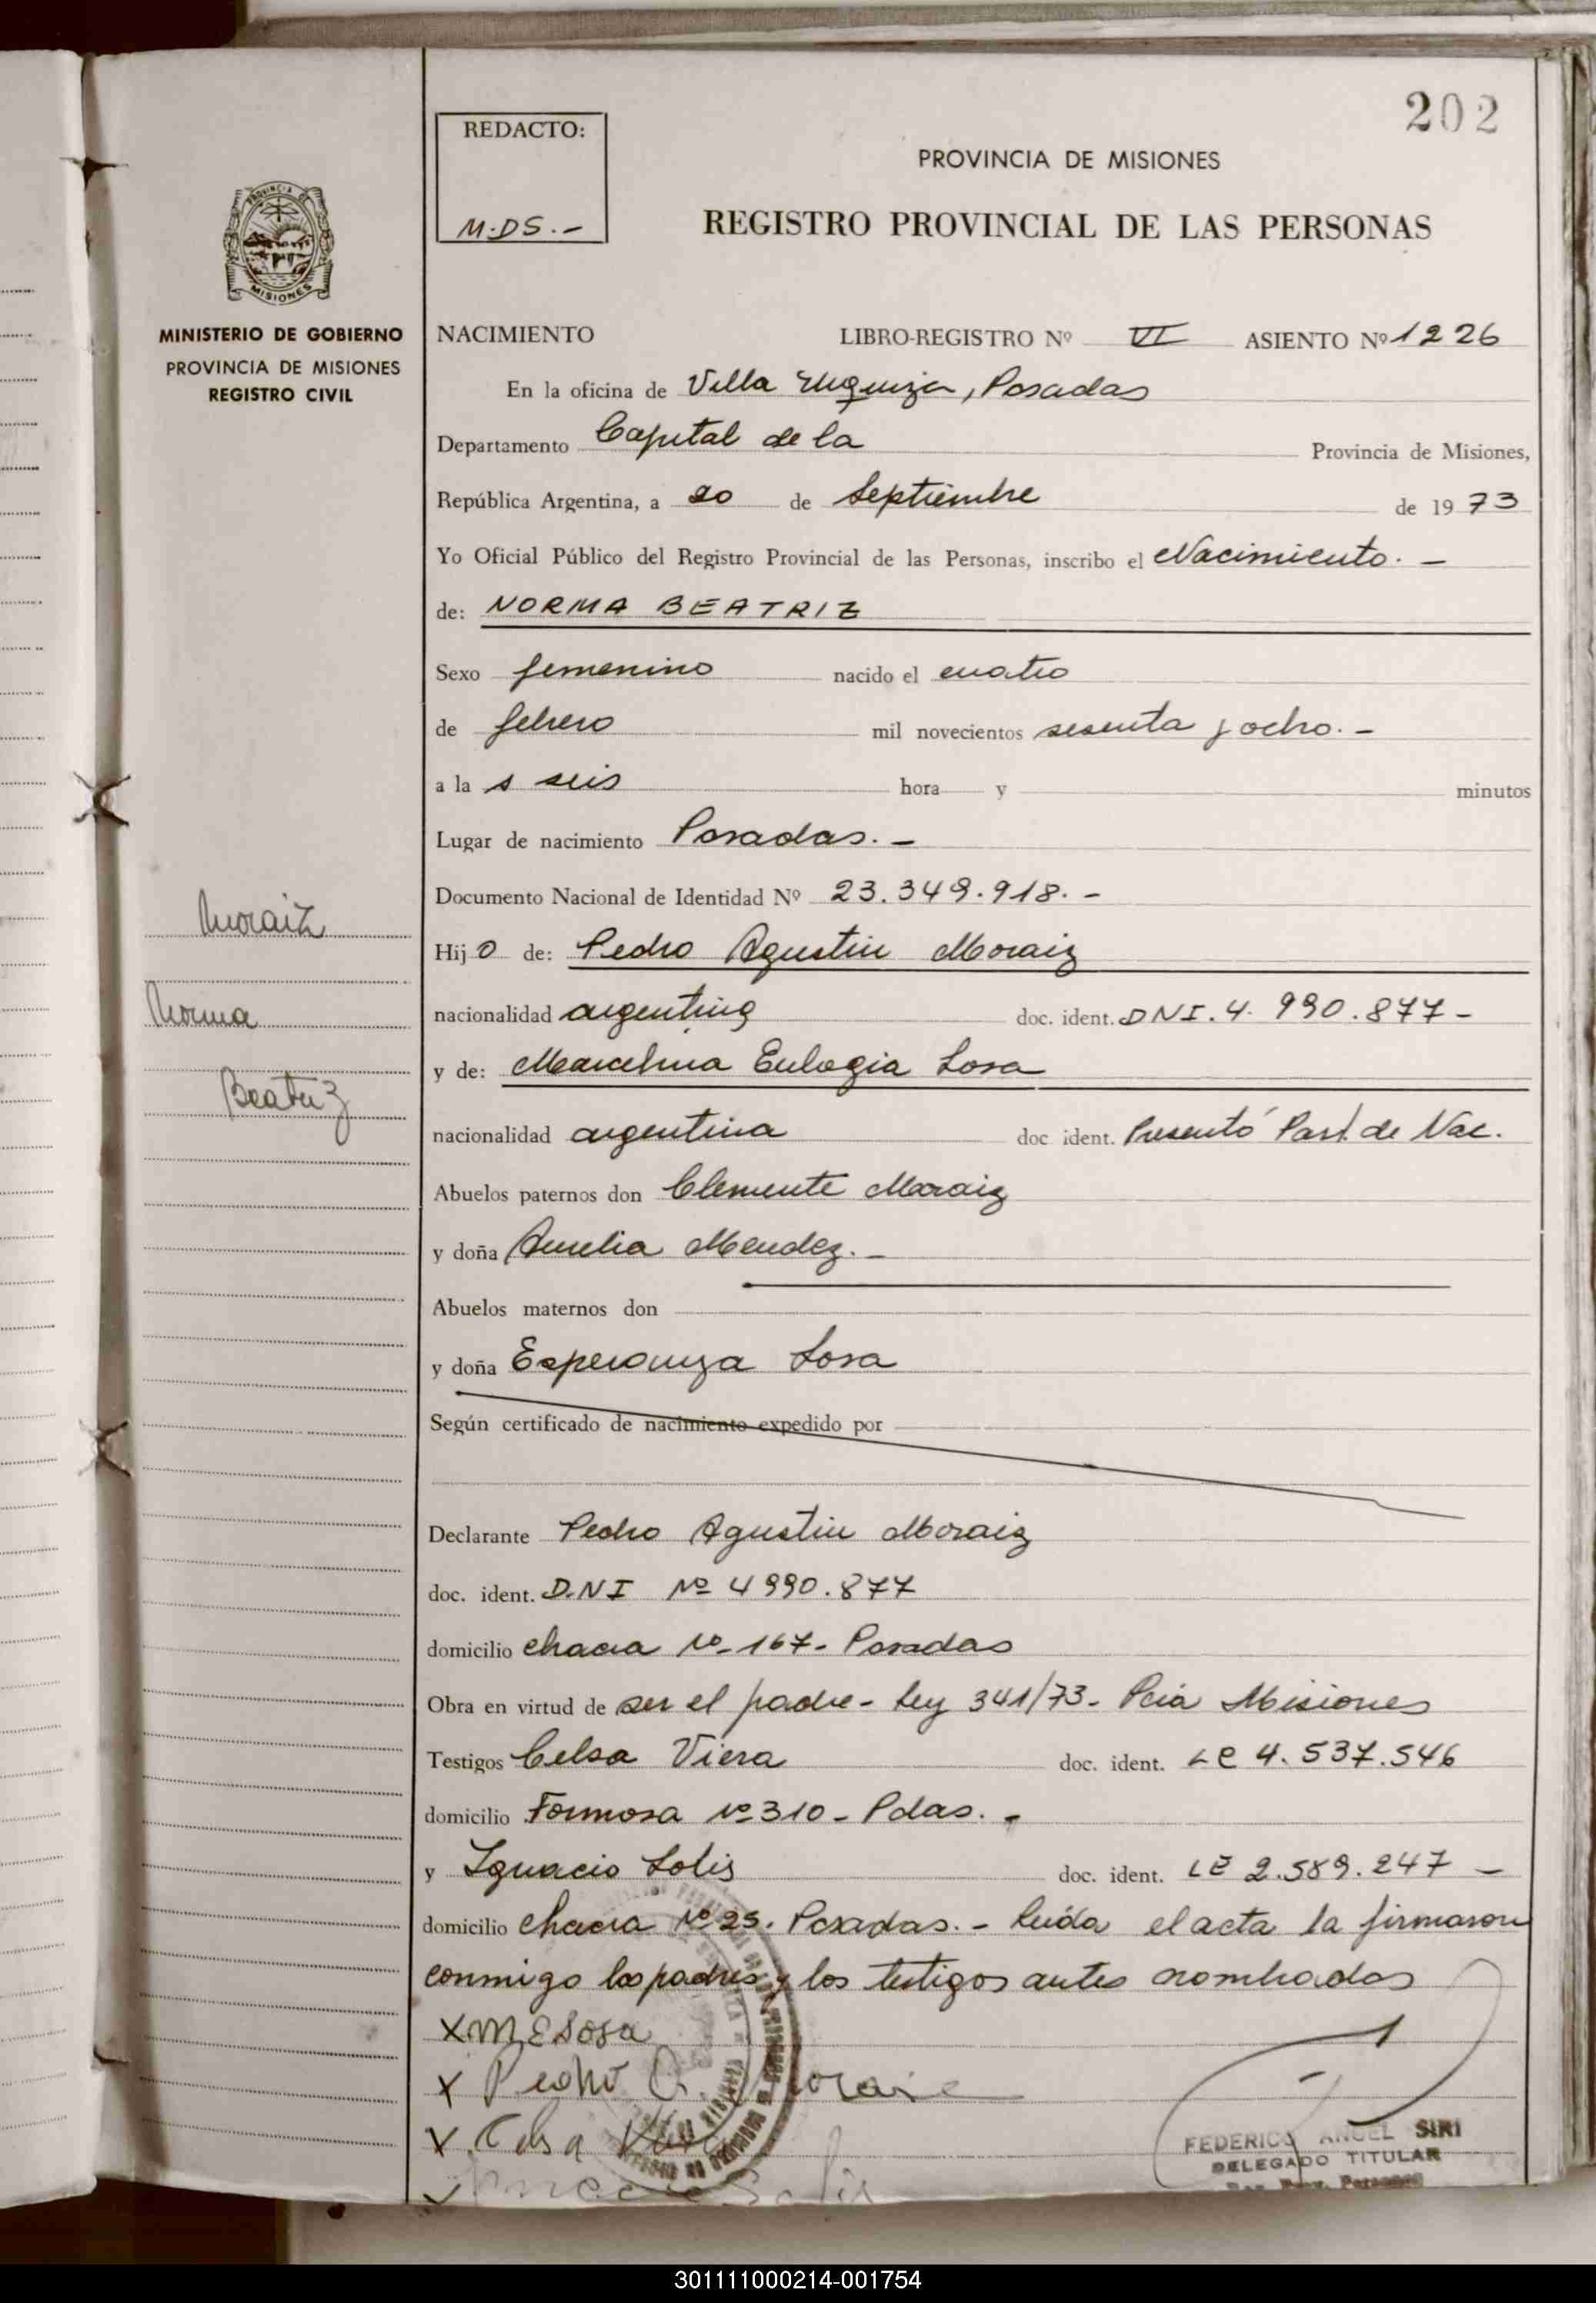 202
REDACTO:
M.DS.-
PROVINCIA DE MISIONES
REGISTRO PROVINCIAL DE LAS PERSONAS
MISIONES
MINISTERIO DE GOBIERNO
PROVINCIA DE MISIONES
REGISTRO CIVIL
NACIMIENTO LIBRO-REGISTRO Nº VI ASIENTO Nº 1226
En la oficina de Villa Urquiza, Posadas
Departamento Capital de la Provincia de Misiones,
República Argentina, a 20 de Septiembre de 1973
Yo Oficial Público del Registro Provincial de las Personas, inscribo el Nacimiento. -
de: NORMA BEATRIZ
Sexo femenino nacido el cuatro
de febrero mil novecientos sesenta y ocho. -
a las seis hora y minutos
Lugar de nacimiento Posadas. -
Documento Nacional de Identidad Nº 23.349.918. -
Moraiz
Norma
Beatriz
Hijo de: Pedro Agustin Moraiz
nacionalidad argentina doc. ident. DNI. 4. 990.877-
y de: Marcelina Eulogia Sosa
nacionalidad argentina doc. ident. Presentó Part. de Nac.
Abuelos paternos don Clemente Moraiz
y doña Aurelia Mendez. -
Abuelos maternos don
y doña Esperanza Sosa
Según certificado de nacimiento expedido por
Declarante Pedro Agustin Moraiz
doc. ident. D.NI Nº 4990.877
domicilio chacra Nº 167- Posadas
Obra en virtud de ser el padre- Ley 341/73- Pcia Misiones
Testigos Celsa Viera doc. ident. LC 4.537.546
domicilio Formosa Nº 310- Pdas. -
y Ignacio Solis doc. ident. LE 2.589.247 -
domicilio chacra Nº 25. Posadas. - Leída el acta la firmaron
conmigo los padres y los testigos antes nombrados
X M E Sosa
X Pedro A. Moraiz
X Celsa
Ignacio Solis
FEDERICO ANGEL SIRI
DELEGADO TITULAR
301111000214-001754